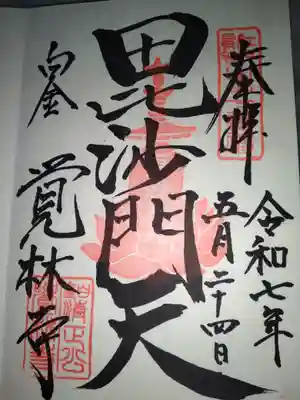 奉拝
令和七年
五月二十四日
毘沙門天
白金
覚林寺
清正公